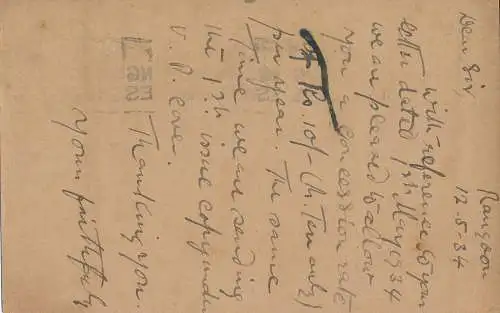 Rangoon
12-5-34
Dear Sir,
With reference to your
letter dated 1st May 1934
we are pleased to allow
you a concession rate
of Rs. 10/- (Rs. Ten only)
per year. The same
time we are sending
the 1st issue copy under
V. P. cover.
Thanking you.
Yours faithfully